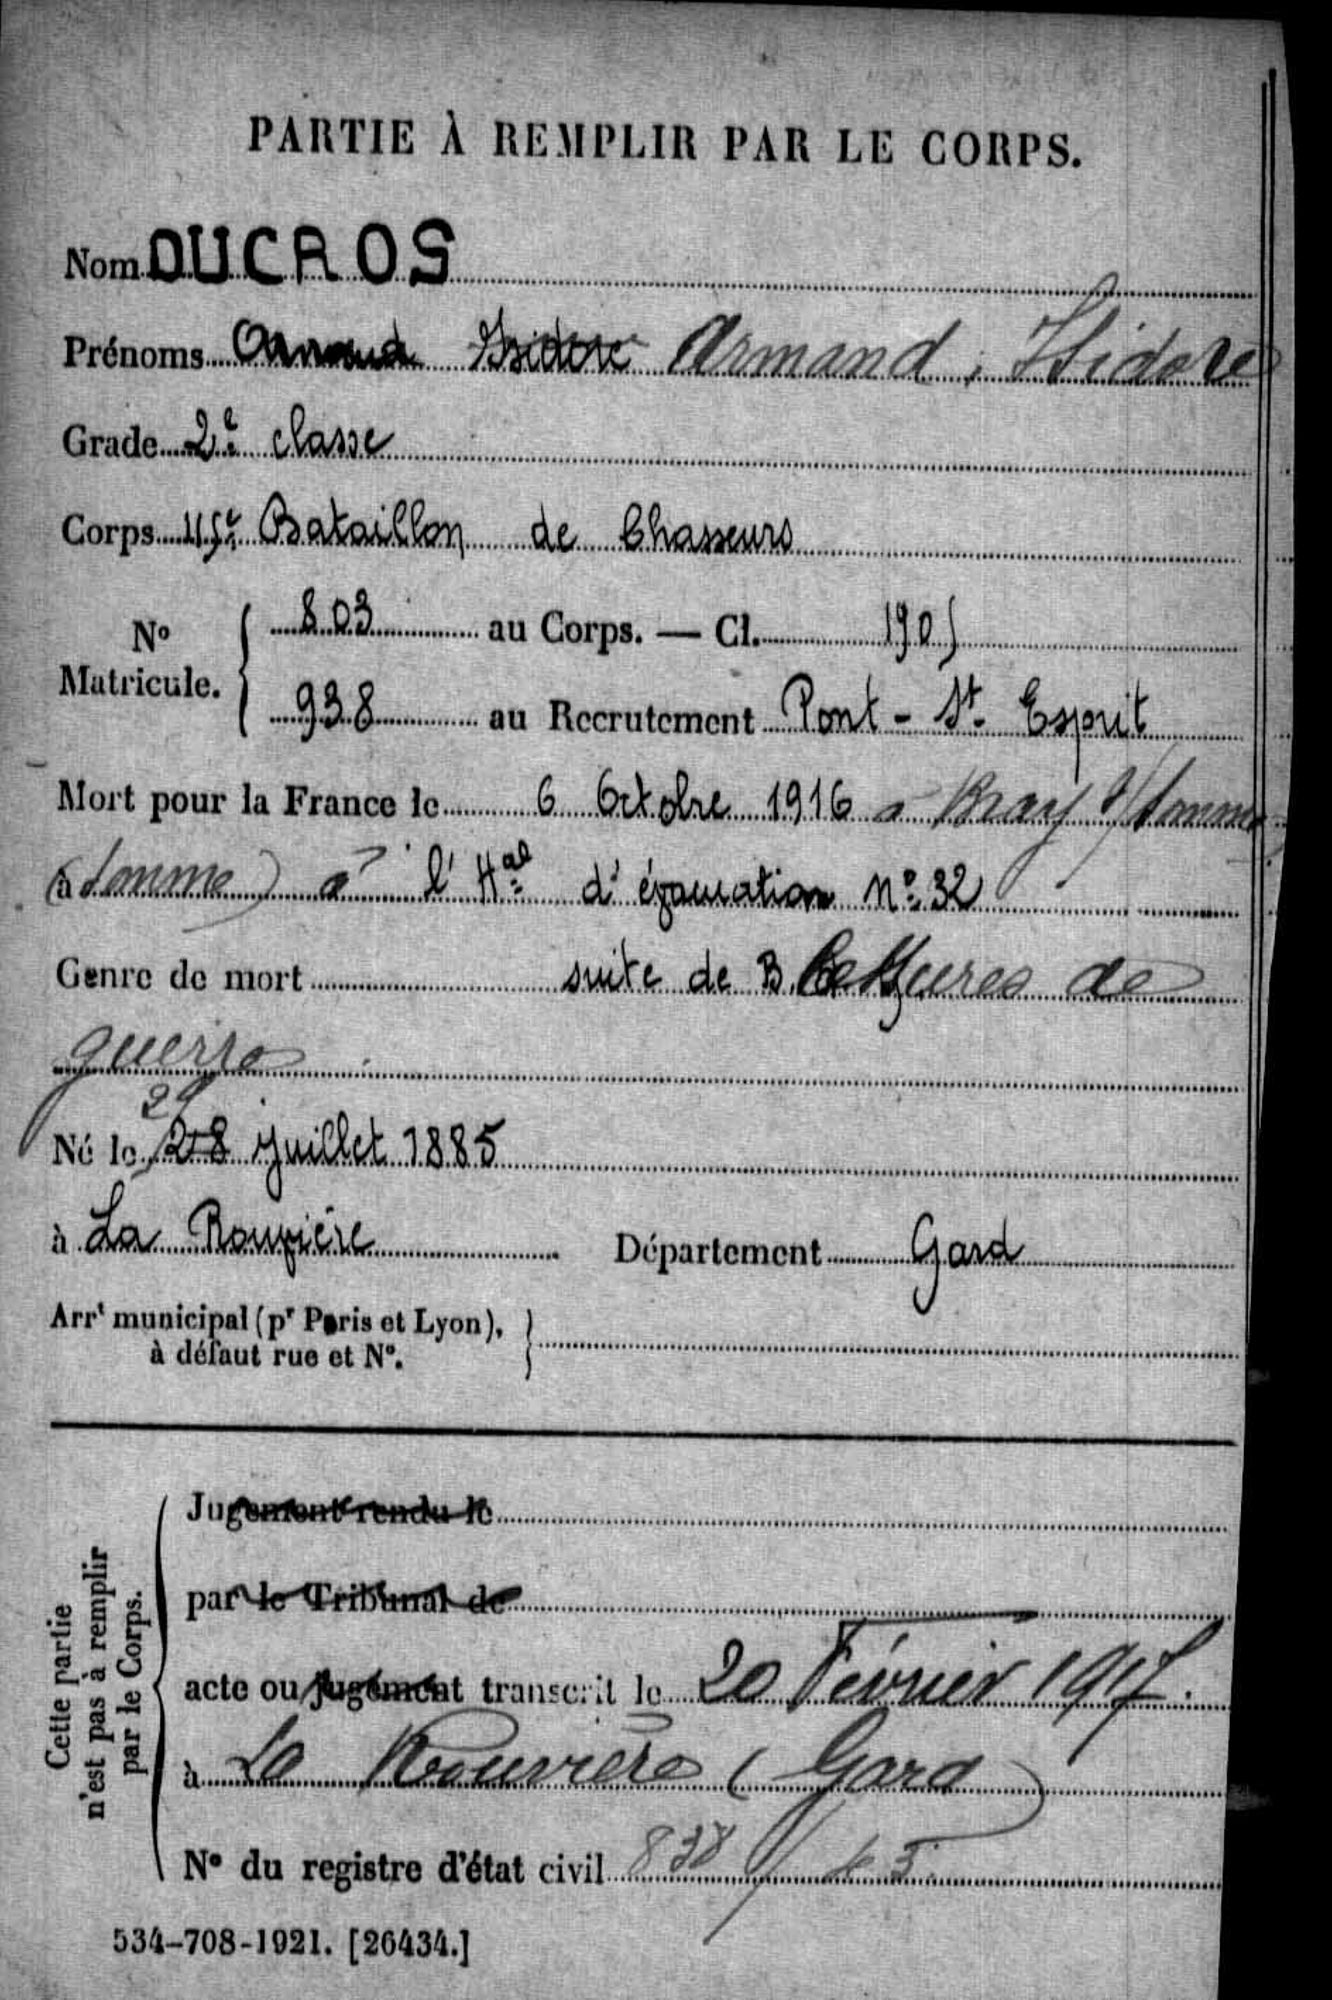 PARTIE À REMPLIR PAR LE CORPS.
Nom DUCROS
Prénoms Armand Isidore Armand, Isidore
Grade 2e classe
Corps 45e Bataillon de Chasseurs
No Matricule. { 803 au Corps. — Cl. 1905
938 au Recrutement Pont - St- Esprit
Mort pour la France le 6 Octobre 1916 à Bray s/ Somme
à (Somme) à l'Hal d'évacuation No 32
Genre de mort suite de Blessures de
guerre
29
Né le 28 Juillet 1885
à La Rouvière Département Gard
Arrt municipal (pr Paris et Lyon),
à défaut rue et No.
Cette partie
n'est pas à remplir
par le Corps.
Jugement rendu le
par le Tribunal de
acte ou jugement transcrit le 20 Février 1917.
à La Rouvière (Gard)
No du registre d'état civil 838/
534-708-1921. [26434.]